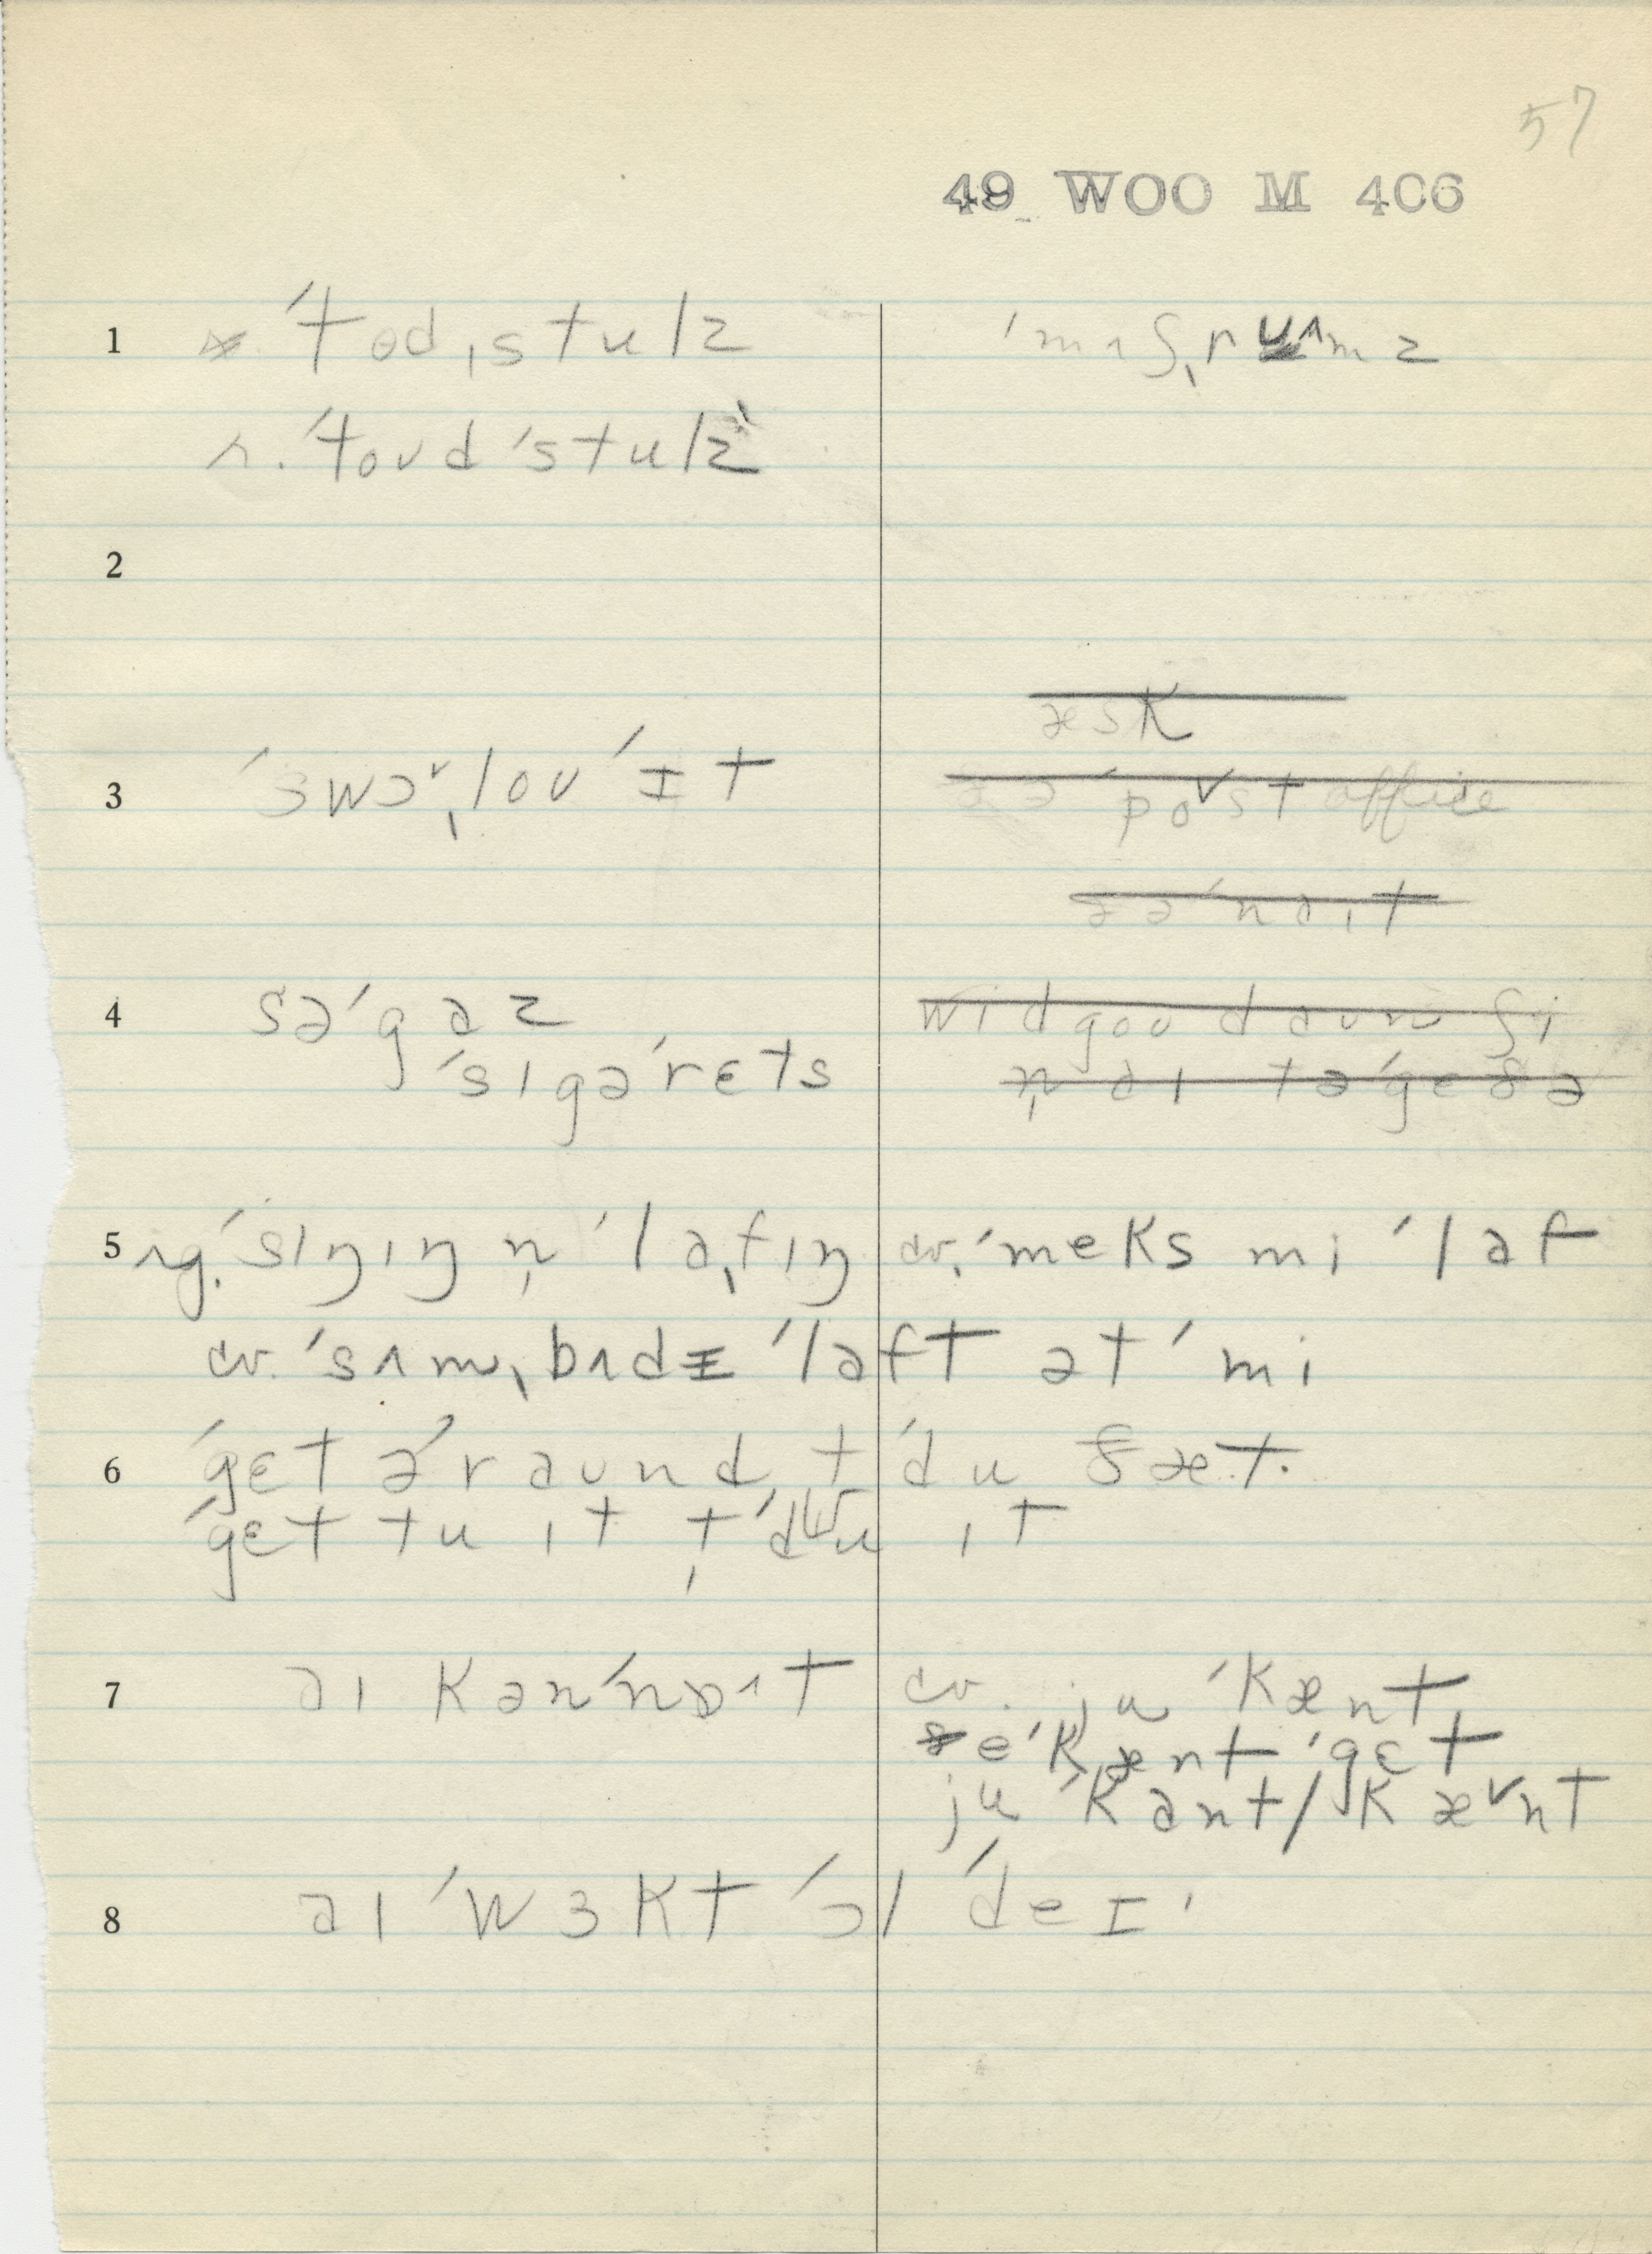 57
49 WOO M 406
1 ˈtɵdˌstulz ˈmʌʃˌrʊʌmz
r. ˈtoʊdˈstulz
2
æsk
3 ˈswɔˌloʊ ˈɪt ðə ˈpoʊst office
ðə ˈnaɪt
4 səˈgaz wid goʊ daʊn ʃi
ˈsɪgəˈrɛts n̩ aɪ təˈgeðə
5 ng. ˈsɪŋɪŋ n̩ ˈlaˌfɪŋ cv. ˈmeks mi ˈlaf
cv. ˈsʌmˌbʌdɪ ˈlaft ət ˈmi
6 ˈgɛt əˈraʊnd tˈdu ðæt.
ˈgɛt tu ɪt tˈdu ɪt
7 aɪ kanˈnɒt cv. ju ˈkænt
ðe ˈkænt ˈgɛt
ju ˈkant/ˈkænt
8 aɪ ˈwɜkt ˈɔl ˈdeɪ